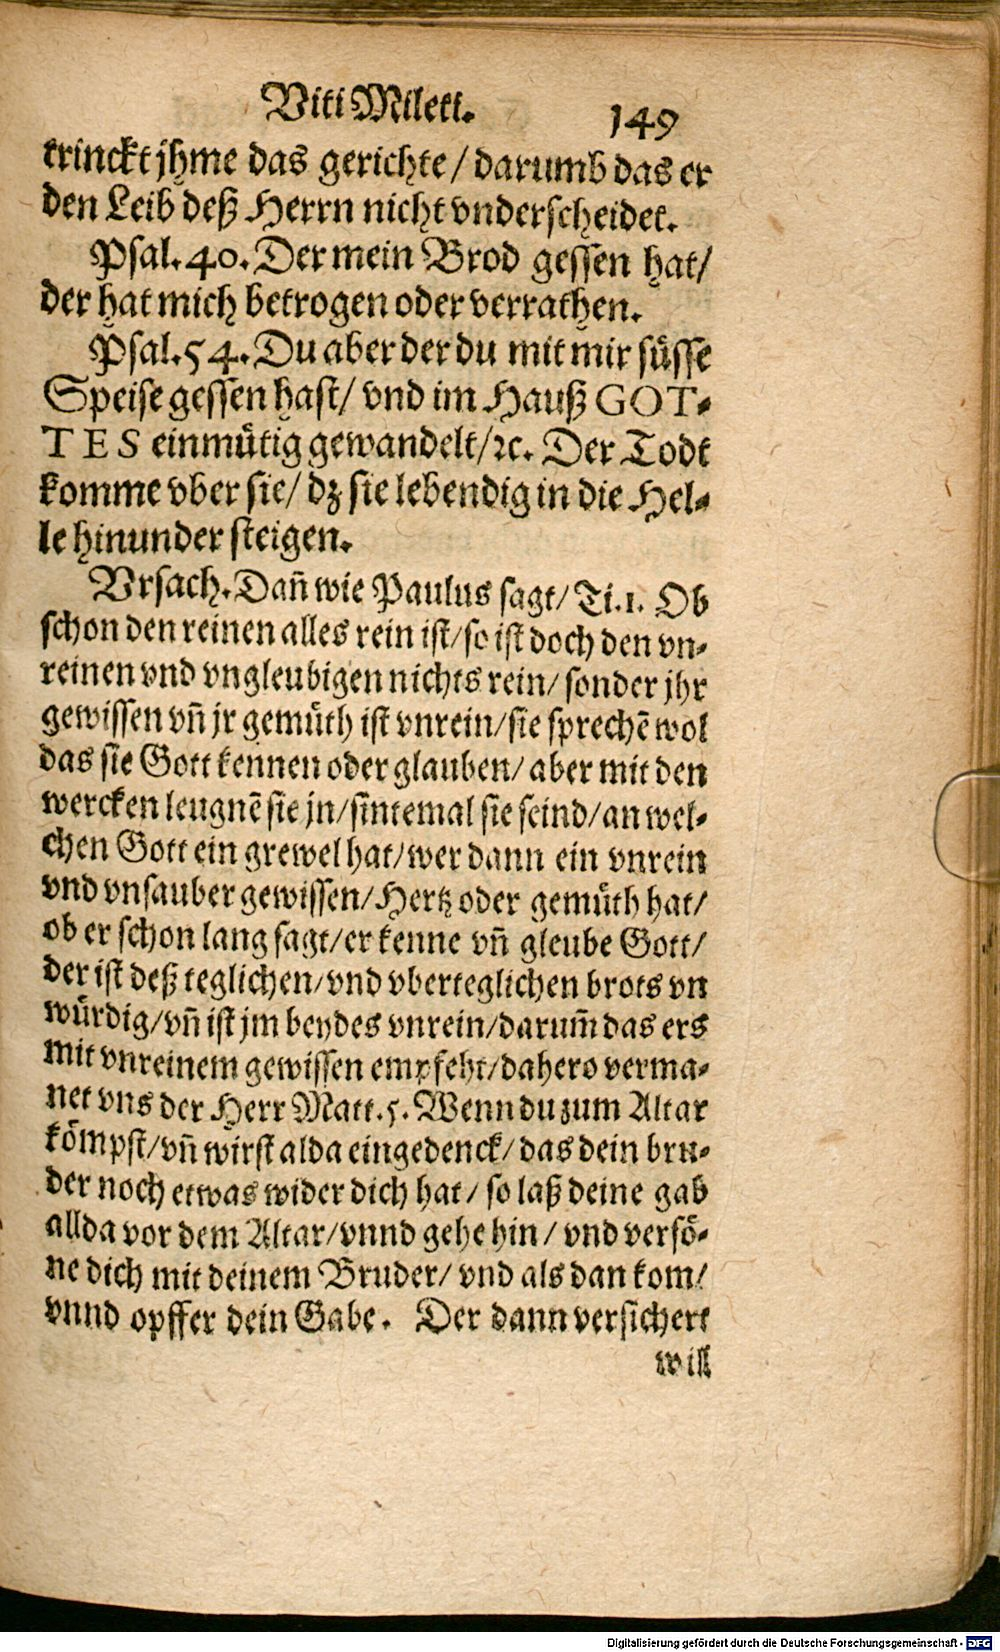 Viti Mileti. 149
trinckt jhme das gerichte / darumb das er
den Leib deß Herrn nicht vnderscheidet.
Psal. 40. Der mein Brod gessen hat /
der hat mich betrogen oder verrathen.
Psal. 54. Du aber der du mit mir süsse
Speise gessen hast / vnd im Hauß GOT-
TES einmütig gewandelt / ꝛc. Der Todt
komme vber sie / dz sie lebendig in die Hel-
le hinunder steigen.
Vrsach. Dañ wie Paulus sagt / Ti. 1. Ob
schon den reinen alles rein ist / so ist doch den vn-
reinen vnd vngleubigen nichts rein / sonder jhr
gewissen vñ jr gemüth ist vnrein / sie sprechẽ wol
das sie Gott kennen oder glauben / aber mit den
wercken leugnẽ sie jn / sintemal sie seind / an wel-
chen Gott ein grewel hat / wer dann ein vnrein
vnd vnsauber gewissen / Hertz oder gemüth hat /
ob er schon lang sagt / er kenne vñ gleube Gott /
der ist deß teglichen / vnd vberteglichen brots vn
würdig / vñ ist jm beydes vnrein / darum̃ das ers
mit vnreinem gewissen empfeht / dahero verma-
net vns der Herr Matt. 5. Wenn du zum Altar
kömpst / vñ wirst alda eingedenck / das dein bru-
der noch etwas wider dich hat / so laß deine gab
allda vor dem Altar / vnnd gehe hin / vnd versö-
ne dich mit deinem Bruder / vnd als dan kom /
vnnd opffer dein Gabe. Der dann versichert
will
Digitalisierung gefördert durch die Deutsche Forschungsgemeinschaft - DFG